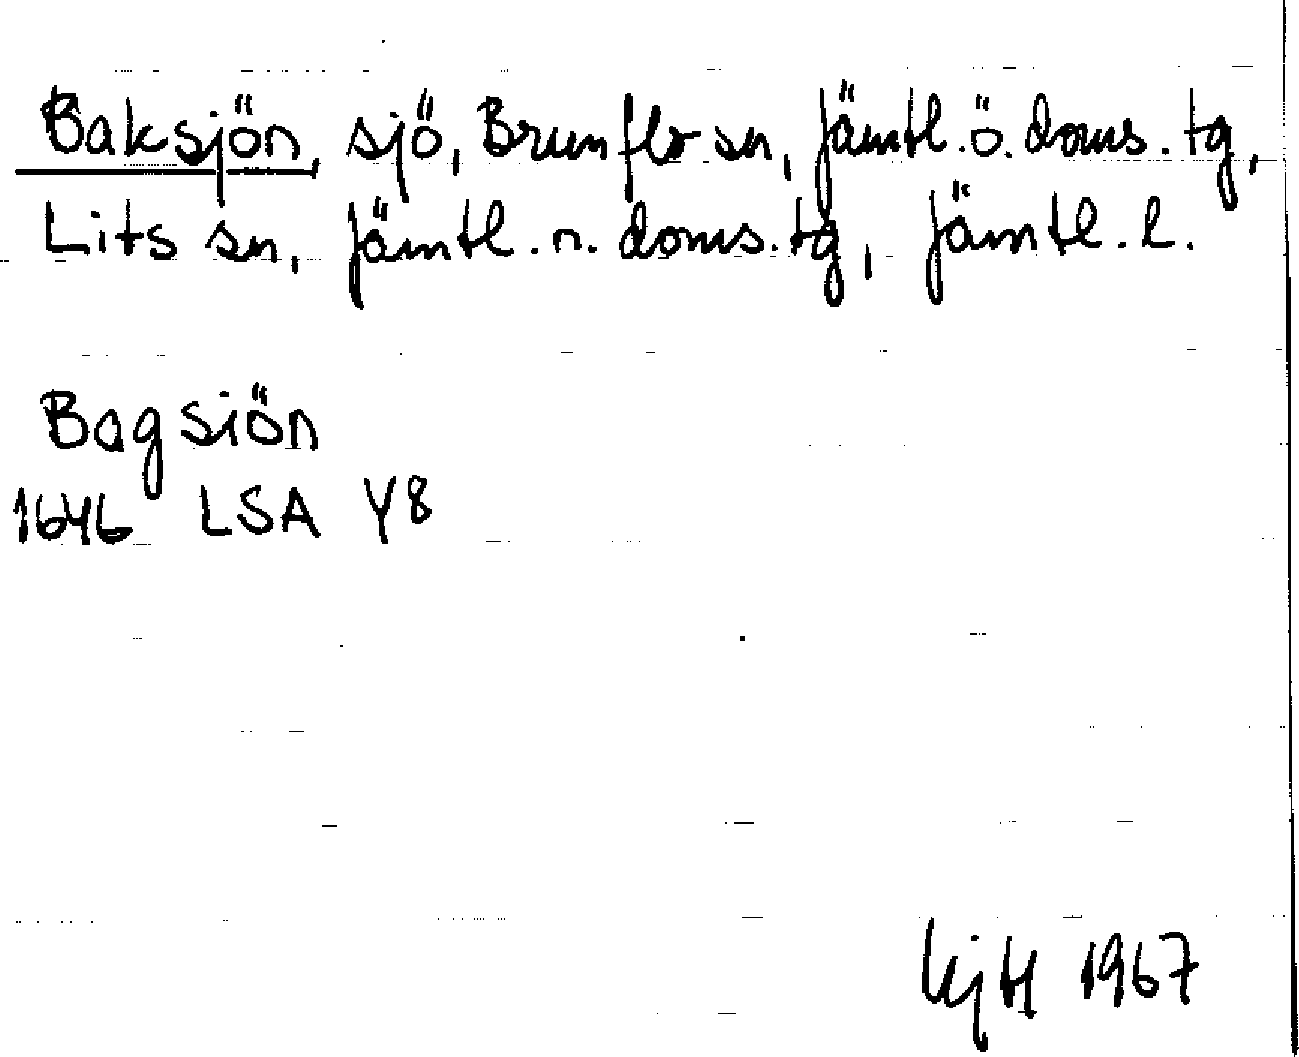 Baksjön, sjö, Brunflo sn, Jämtl. ö. doms. tg,
Lits sn, Jämtl. n. doms. tg, Jämtl. l.
Bagsiön
1646 LSA Y8
1967